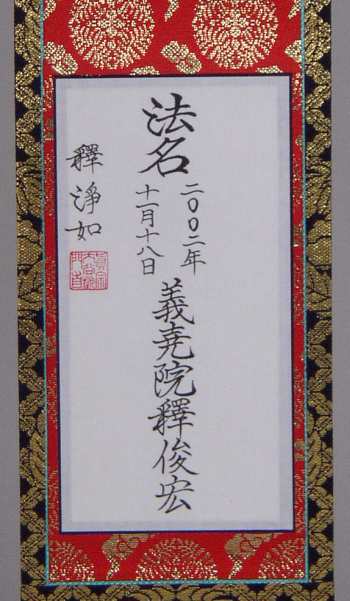 法名
二〇〇二年
十一月十八日
義堯院釋俊宏
釋淨如